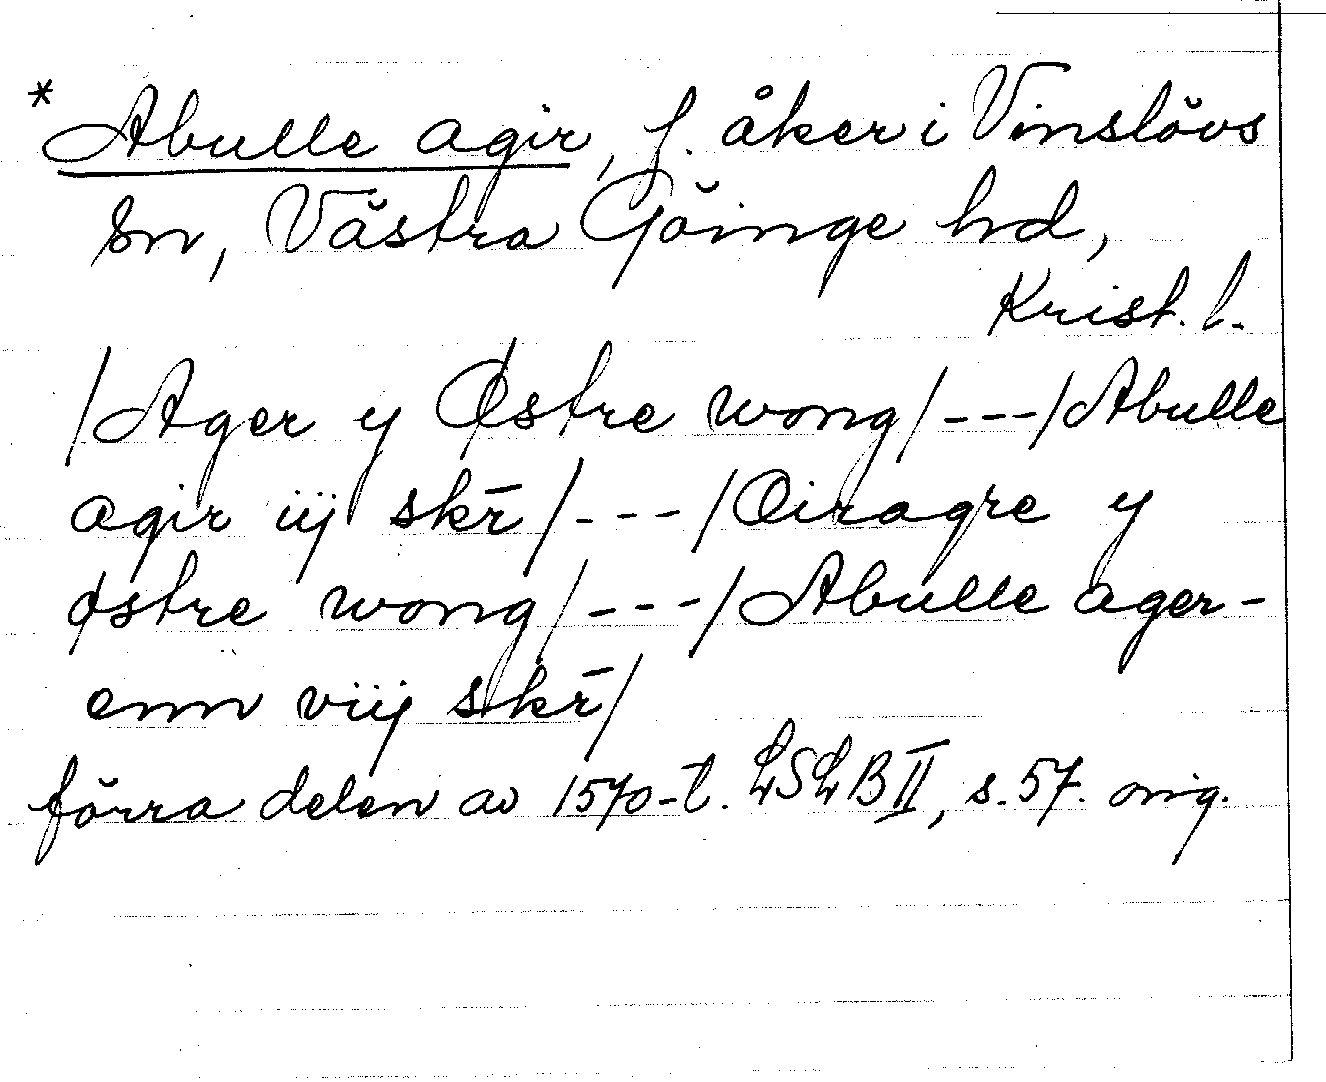 * Abulle agir, f. åker i Vinslövs
sn, Västra Göinge hd,
Krist. l.
/Ager y Østre wong/---/Abulle
agir iij skr̄/---/Oiragre y
østre wong/---/Abulle ager-
enn viij skr̄/
förra delen av 1570-t. LSLB II, s. 57. orig.